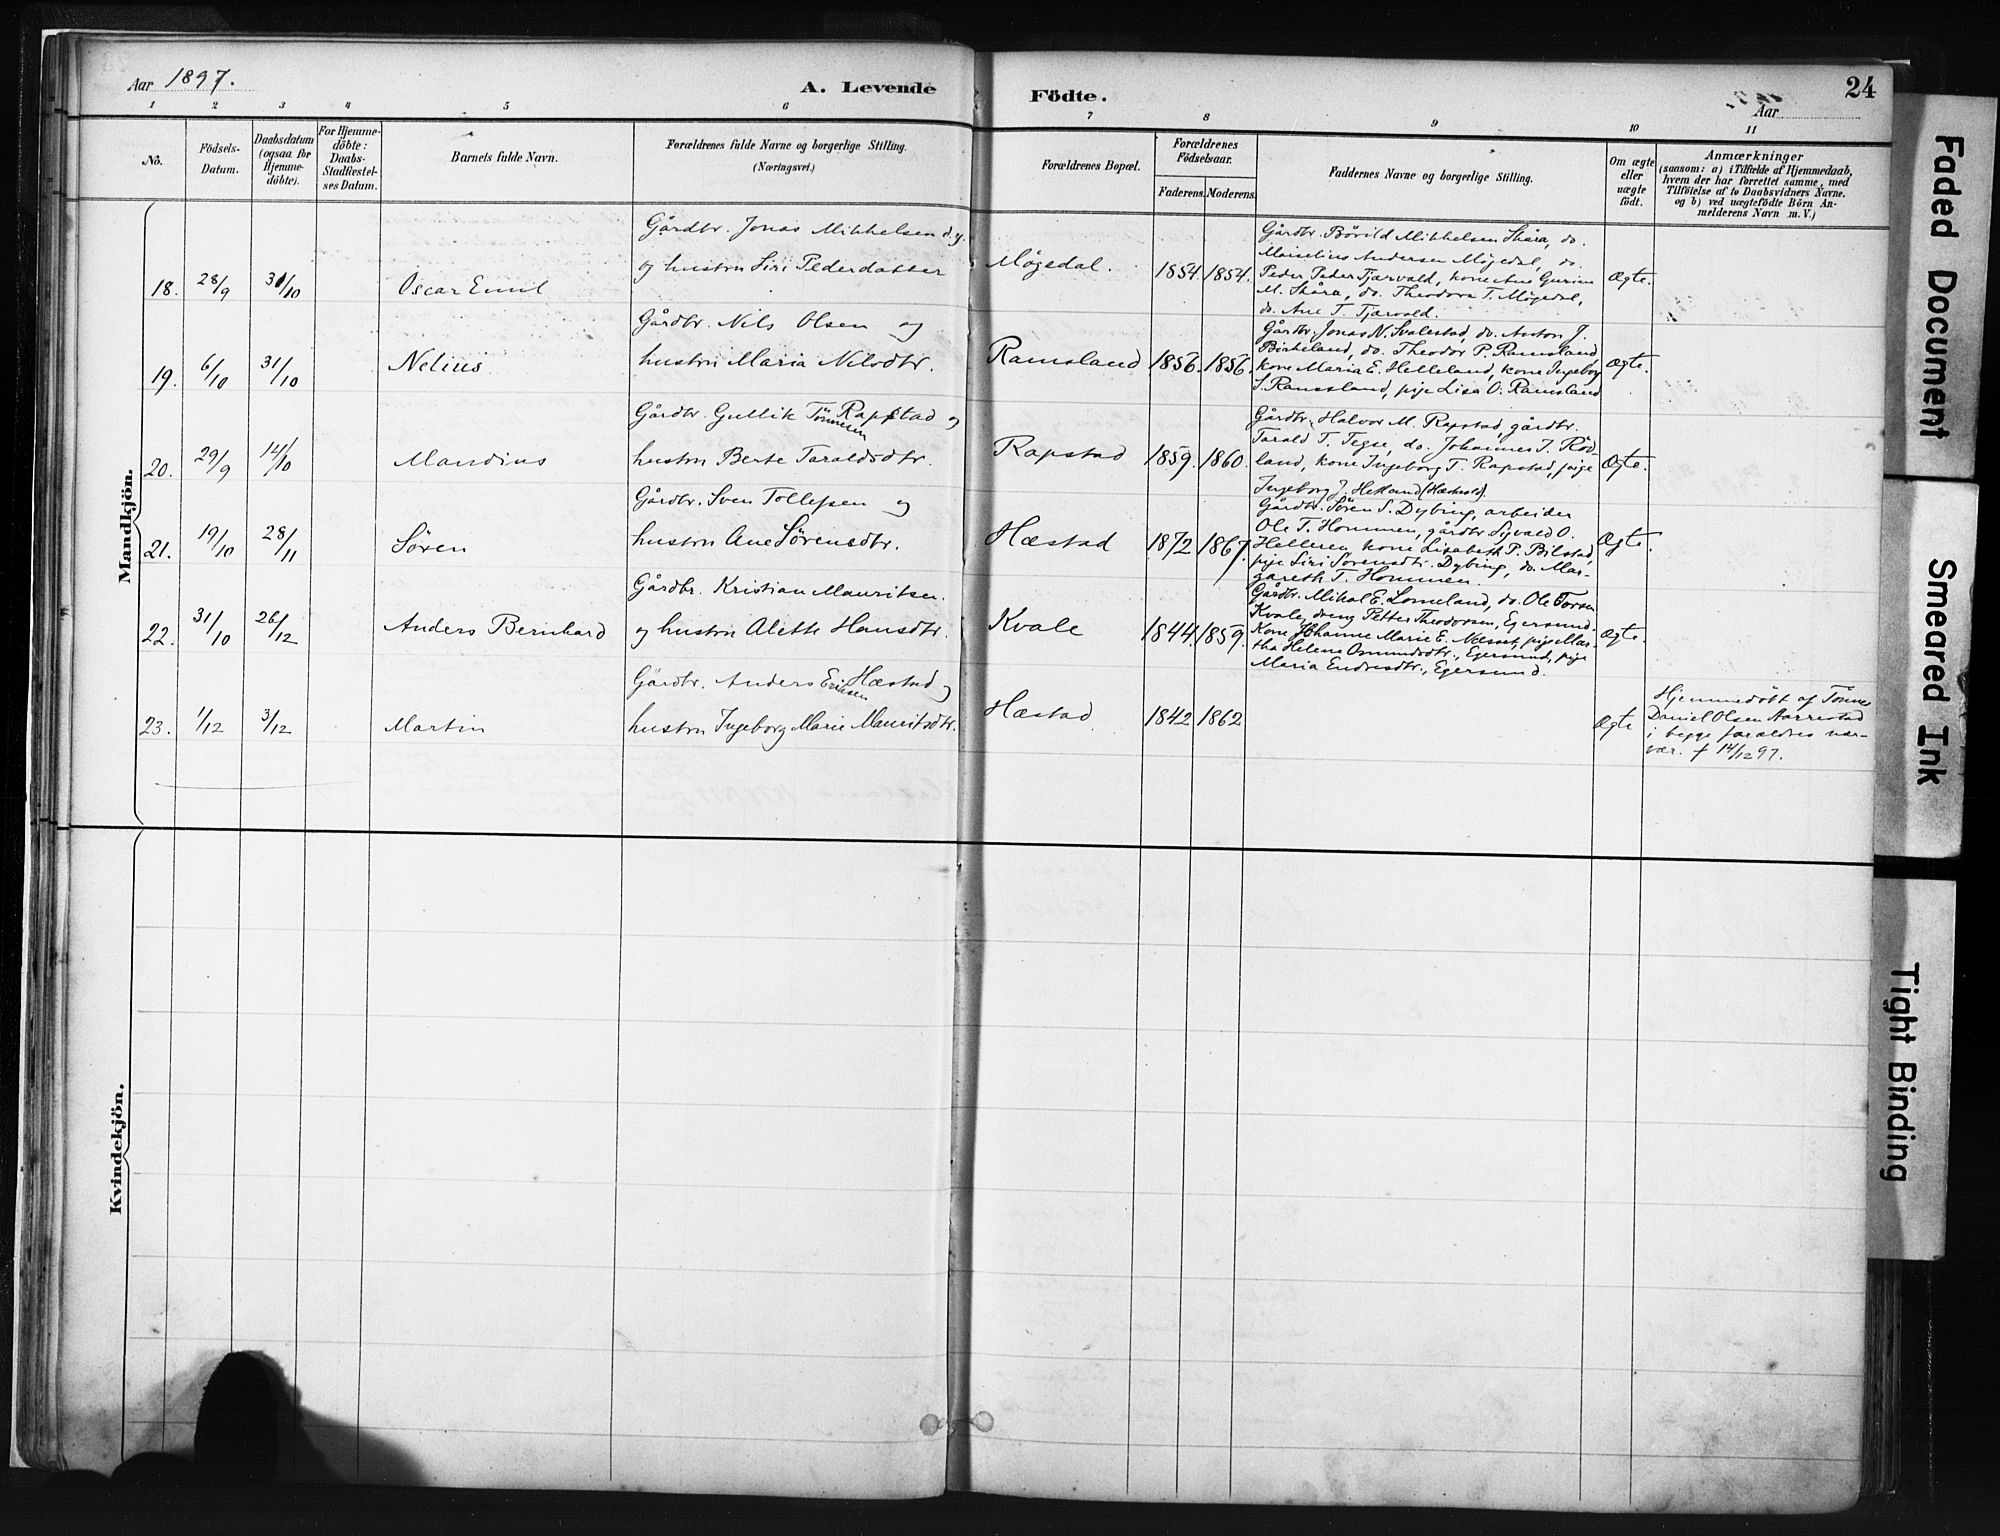 Aar 1897. A. Levende Födte. Aar 24
1 2 3 4 5 6 7 8 9 10 11
No.
Födsels-
Datum.
Daabsdatum
(ogsaa for
Hjemme-
döbte).
For Hjemme-
döbte:
Daabs-
Stadfæstel-
ses Datum.
Barnets fulde Navn.
Forældrenes fulde Navne og borgerlige Stilling.
(Næringsvei.)
Forældrenes Bopæl.
Forældrenes
Födselsaar.
Faderens. Moderens.
Faddernes Navne og borgerlige Stilling.
Om ægte
eller
uægte
födt.
Anmærkninger
(saasom: a) i Tilfælde af Hjemmedaab,
hvem der har forrettet samme, med
Tilföielse af to Daabsvidners Navne.
og b) ved uægtefödte Börn An-
melderens Navn m. V.)
Mandkjön.
18. 28/9 31/10 Oscar Emil
Gårdbr. Jonas Mikkelsen d.y.
og hustru Siri Pedersdatter
Møgedal. 1854. 1854.
Gårdbr. Bårild Mikkelsen Skåra, do.
Marselius Andersen Møgedal, do.
Peder Peder Tjørvald, kone Ane Gurine
M. Skåra, do. Theodora T. Møgedal,
do. Ane T. Tjørvald.
Ægte.
19. 6/10 31/10 Nelius
Gårdbr. Nils Olsen og
hustru Maria Nilsdtr.
Ramsland 1856. 1856.
Gårdbr. Jonas N. Svalestad, do. Anton J.
Birkeland, do. Theodor P. Ramsland,
kone Maria E. Helleland, kone Ingeborg
S. Ramsland, pige Lisa O. Ramsland
Ægte.
20. 29/9 14/10 Mandius
Gårdbr. Gullik Tönnesen Rapstad og
hustru Berte Taraldsdtr.
Rapstad 1859. 1860.
Gårdbr. Halvor M. Rapstad, gårdbr.
Tarald T. Tegse, do. Johannes J. Röd-
land, kone Ingeborg T. Rapstad, pige
Ingeborg J. Hetland (Hæstad).
Ægte.
21. 19/10 28/11 Sören
Gårdbr. Sven Tollefsen og
hustru Ane Sörensdtr.
Hæstad 1872 1867.
Gårdbr. Sören S. Dybing, arbeider
Ole T. Hommen, gårdbr. Syvald O.
Helleren, kone Lisabeth P. Bilstad,
pige Siri Sørensdtr. Dybing, do. Mar-
gareth T. Hommen.
Ægte.
22. 31/10 26/12 Anders Bernhard
Gårdbr. Kristian Mauritsen.
og hustru Alette Hansdtr.
Kvale 1844. 1859.
Gårdbr. Mikal E. Lomeland, do. Ole Torsen
Kvale, dreng Petter Theodorsen, Egersund.
Kone Johanne Marie E. Næsset, pige Mar-
tha Helene Osmundsdtr., Egersund, pige
Maria Endresdtr., Egersund.
Ægte.
23. 1/12 3/12 Martin
Gårdbr. Anders Eriksen Hæstad og
hustru Ingeborg Marie Mauritsdtr.
Hæstad 1842 1862
Ægte
Hjemmedöbt af Tönnes
Daniel Olsen Aarrestad
i begge forældres nær-
vær. † 14/12 97.
Kvindekjön.
Faded Document
Smeared Ink
Tight Binding